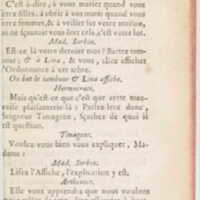 C'est à dire, à vous marier quand vous
êtes filles, à obéir à vos maris quand vous
êtes femmes, & à veiller sur votre maison,
& ne songer qu'à vous être cela, c'est votre lot.
Mad. Sorbin.
Est-ce là votre dernier mot? Battez tam-
bour; & à Lina, & vous, allez afficher
l'Ordonnance à cet arbre.
On bat le tambour & Lina affiche.
Hermocrate.
Mais qu'est-ce que c'est que cette mau-
vaise plaisanterie-là? Parlez-leur donc,
Seigneur Timagene, sçachez de quoi il
est question.
Timagene.
Voulez-vous bien vous expliquer, Ma-
dame?
Mad. Sorbin.
Lisez l'Affiche, l'explication y est.
Arthenice.
Elle vous apprendra que nous voulons